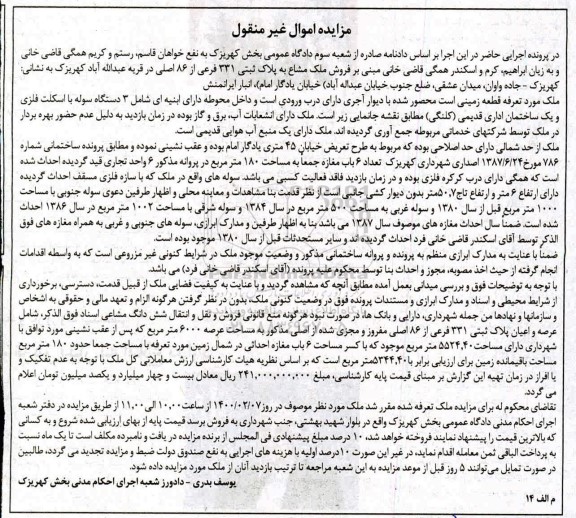 مزایده اموال غیر منقول
در پرونده اجرایی حاضر در این اجرا بر اساس دادنامه صادره از شعبه سوم دادگاه عمومی بخش کهریزک به نفع خواهان قاسم، رستم و کریم همگی قاضی خانی
و به زیان ابراهیم، کرم و اسکندر همگی قاضی خانی مبنی بر فروش ملک مشاع به پلاک ثبتی ۳۳۱ فرعی از ۸۶ اصلی در قریه عبدالله آباد کهریزک به نشانی:
کهریزک - جاده واوان، میدان عشقی، ضلع جنوب خیابان عبداله آباد) خیابان یادگار امام)، انبار ایرانمنش
ملک مورد تعرفه قطعه زمینی است محصور شده با دیوار آجری دارای درب ورودی است و داخل محوطه دارای ابنیه ای شامل ۳ دستگاه سوله با اسکلت فلزی
و یک ساختمان اداری قدیمی (کلنگی) مطابق نقشه جانمایی زیر است. ملک دارای انشعابات آب، برق و گاز بوده در زمان بازدید به دلیل عدم حضور بهره بردار
در ملک توسط شرکتهای خدماتی مربوطه جمع آوری گردیده اند. ملک دارای یک منبع آب هوایی قدیمی است.
ملک از حد شمالی دارای حد اصلاحی بوده که مربوط به طرح تعریض خیابان ۴۵ متری یادگار امام بوده و عقب نشینی نموده و مطابق پروانه ساختمانی شماره
۷۸۶ مورخ ۱۳۸۷/۶/۲۴ صداری شهرداری کهریزک تعداد ۶ باب مغازه جمعاً به مساحت ۱۸۰ متر مربع در پروانه مذکور ۶ واحد تجاری قید گردیده احداث شده
است که همگی دارای درب کرکره فلزی بوده و در زمان بازدید فاقد فعالیت کسبی می باشد. سوله های واقع در ملک که با سازه فلزی مسقف احداث گردیده
دارای ارتفاع ۶ متر و ارتفاع تاج ۵۰٫۷ متر بدون دیوار کشی جانبی است از نظر قدمت بنا مشاهدات و معاینه محلی و اظهار طرفین دعوی سوله جنوبی با مساحت
۱۰۰۰ متر مربع قبل از سال ۱۳۸۰ و سوله غربی به مساحت ۸۰۰ متر مربع در سال ۱۳۸۴ و سوله شرقی با مساحت ۱۰۰۲ متر مربع در سال ۱۳۸۶ احداث
شده است. ضمناً سال احداث مغازه های موصوف سال ۱۳۸۷ می باشد. بنا به اظهار طرفین و مدارک ابرازی، سوله های جنوبی و غربی به همراه مغازه های فوق
الذکر توسط آقای اسکندر قاضی خانی فرد احداث گردیده اند و سایر مستحدثات قبل از سال ۱۳۸۰ موجود بوده است.
ضمناً با عنایت به مدارک ابرازی منظم به پرونده و پروانه ساختمانی مذکور و وضعیت موجود ملک در شرایط کنونی غیر مزروعی است که به واسطه اقدامات
انجام گرفته از حیث اخذ مصوبه، مجوز و احداث بنا توسط محکوم علیه پرونده (آقای اسکندر قاضی خانی فرد) می باشد.
با توجه به توضیحات فوق و بررسی میدانی بعمل آمده مطابق آنچه که مشاهده گردید و با عنایت به کیفیت فضایی ملک از قبیل قدمت، دسترسی، برخورداری
از شرایط محیطی و اسناد و مدارک ابرازی و مستندات پرونده فوق در وضعیت کنونی ملک، بدون در نظر گرفتن هرگونه الزام و تعهد مالی و حقوقی به اشخاص
و سازمانها و نهادها من جمله شهرداری، دارایی و بانک ها، در صورت نبود هرگونه منع قانونی فروش و نقل و انتقال شش دانگ مشاعی اسناد فوق الذکر، شامل
عرصه و اعیان پلاک ثبتی ۳۳۱ فرعی از ۸۶ اصلی مفروز و مجزی شده از اصلی مذکور به مساحت عرصه ۶۰۰۰ متر مربع که پس از عقب نشینی مورد توافق با
شهرداری دارای مساحت ۵۵۲۴٫۴۰ متر مربع موجود که با کسر مساحت ۶ باب مغازه احداثی در شمال زمین مورد تعرفه با مساحت جمعا حدود ۱۸۰ متر مربع
مساحت باقیمانده زمین برای ارزیابی برابر با ۵۳۴۴٫۴۰ متر مربع است که بر اساس نظریه هیات کارشناسی ارزش معاملاتی کل ملک با توجه به عدم تفکیک و
یا افراز در زمان تهیه این گزارش بر مبنای قیمت پایه کارشناسی، مبلغ ۲۴۱,۰۰۰,۰۰۰,۰۰۰ ریال معادل بیست و چهار میلیارد و یکصد میلیون تومان اعلام
می گردد.
تقاضای محکوم له برای مزایده ملک تعرفه شده مقرر شد ملک مورد نظر موصوف در روز ۱۴۰۰/۰۲/۰۷ از ساعت ۱۰٫۰۰ الی ۱۱٫۰۰ از طریق مزایده در دفتر شعبه
اجرای احکام مدنی دادگاه عمومی بخش کهریزک واقع در بلوار شهید بهشتی، جنب شهرداری به فروش برسد قیمت پایه از بهای ارزیابی شده شروع و به کسانی
که بالاترین قیمت را پیشنهاد نمایند فروخته خواهد شد، ۱۰ درصد مبلغ پیشنهادی فی المجلس از برنده مزایده در یافت و نامبرده مکلف است تا یک ماه نسبت
به پرداخت الباقی ثمن معامله اقدام نماید، در غیر این صورت ۱۰ درصد اولیه با هزینه های اجرایی به نفع صندوق دولت ضبط و مزایده تجدید می گردد، طالبین
در صورت تمایل می توانند ۵ روز قبل از موعد مزایده به این شعبه مراجعه تا ترتیب بازدید آنان از ملک مورد مزایده داده شود.
یوسف بدری - دادورز شعبه اجرای احکام مدنی بخش کهریزک
م الف ۱۴